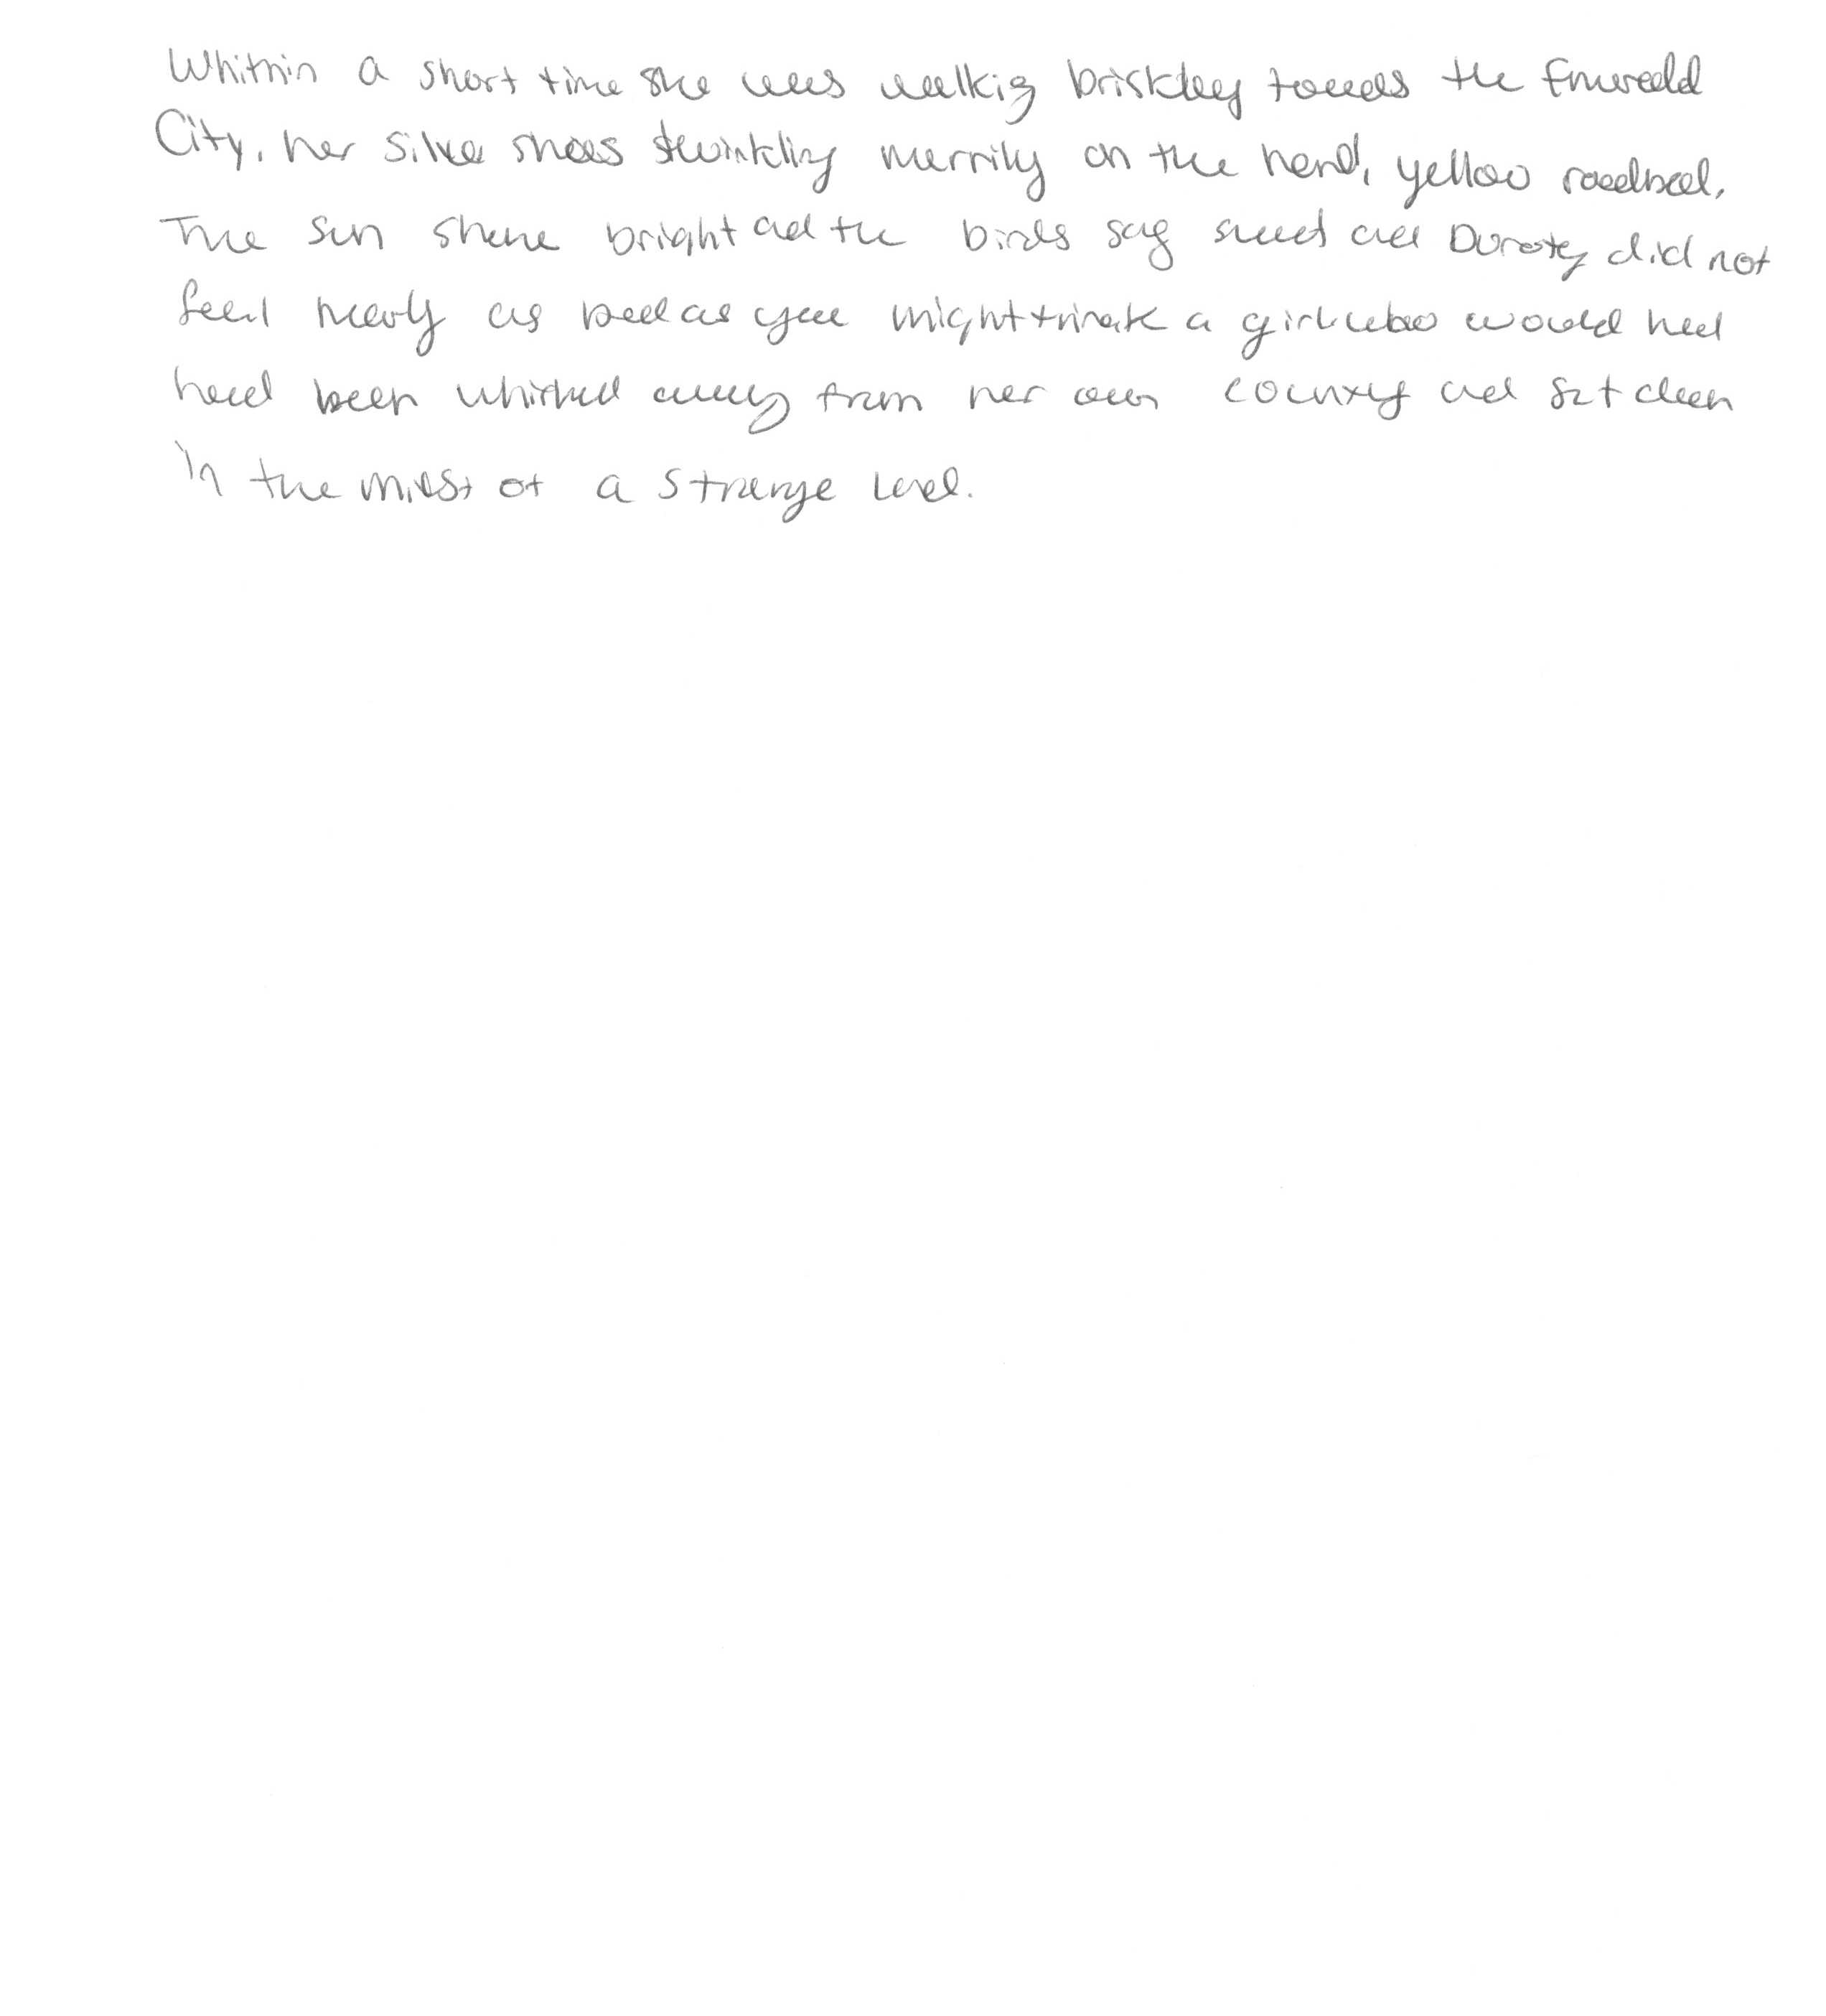 Whithin a short time she was walking briskley towads the Emerald
City, her silver shoes twinkling merrily on the hard, yellow roadbed.
The sun shone bright and the birds sag sweet and Doroty did not
feel nearly as bad as you might think a girl who would had
had been whisked away from her own country and set down
in the midst of a strange land.